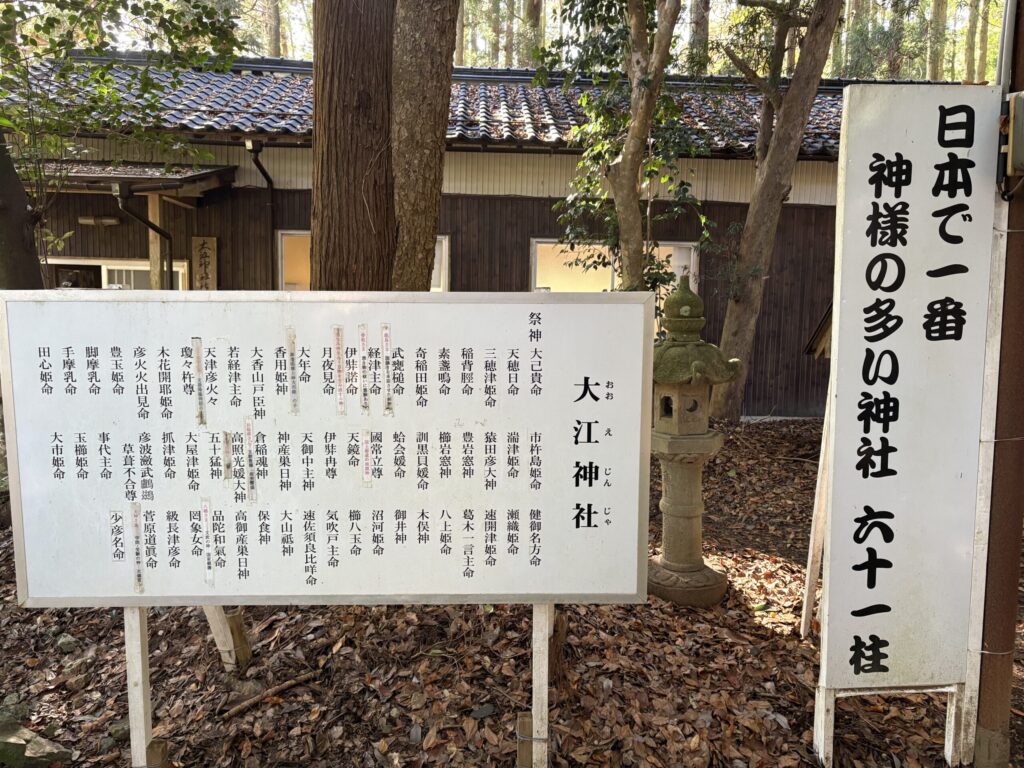 日本で一番
神様の多い神社 六十一柱
大江神社
おおえじんじゃ
祭神 大己貴命 市杵島姫命 健御名方命
天穂日命 湍津姫命 瀬織姫命
三穂津姫命 猿田彦大神 速開津姫命
稲背脛命 豊岩窓神 葛木一言主命
素盞鳴命 櫛岩窓神 八上姫命
奇稲田姫命 訓黒貝媛命 木俣神
武甕槌命 蛤会媛命 御井神
経津主命 國常立尊 沼河姫命
伊弉諾命 天鏡命 櫛八玉命
月夜見命 伊弉冉尊 気吹戸主命
大年命 天御中主神 速佐須良比咩命
香用姫神 神産巣日神 大山祗神
大香山戸臣神 倉稲魂神 保食神
若経津主命 高照光媛大神 高御産巣日神
天津彦火々 五十猛神 品陀和氣命
瓊々杵尊 大屋津姫命 罔象女命
木花開耶姫命 抓津姫命 級長津彦命
彦火火出見命 彦波瀲武鸕鷀 菅原道眞命
豊玉姫命 草葺不合尊 少彦名命
脚摩乳命 事代主命
手摩乳命 玉櫛姫命
田心姫命 大市姫命